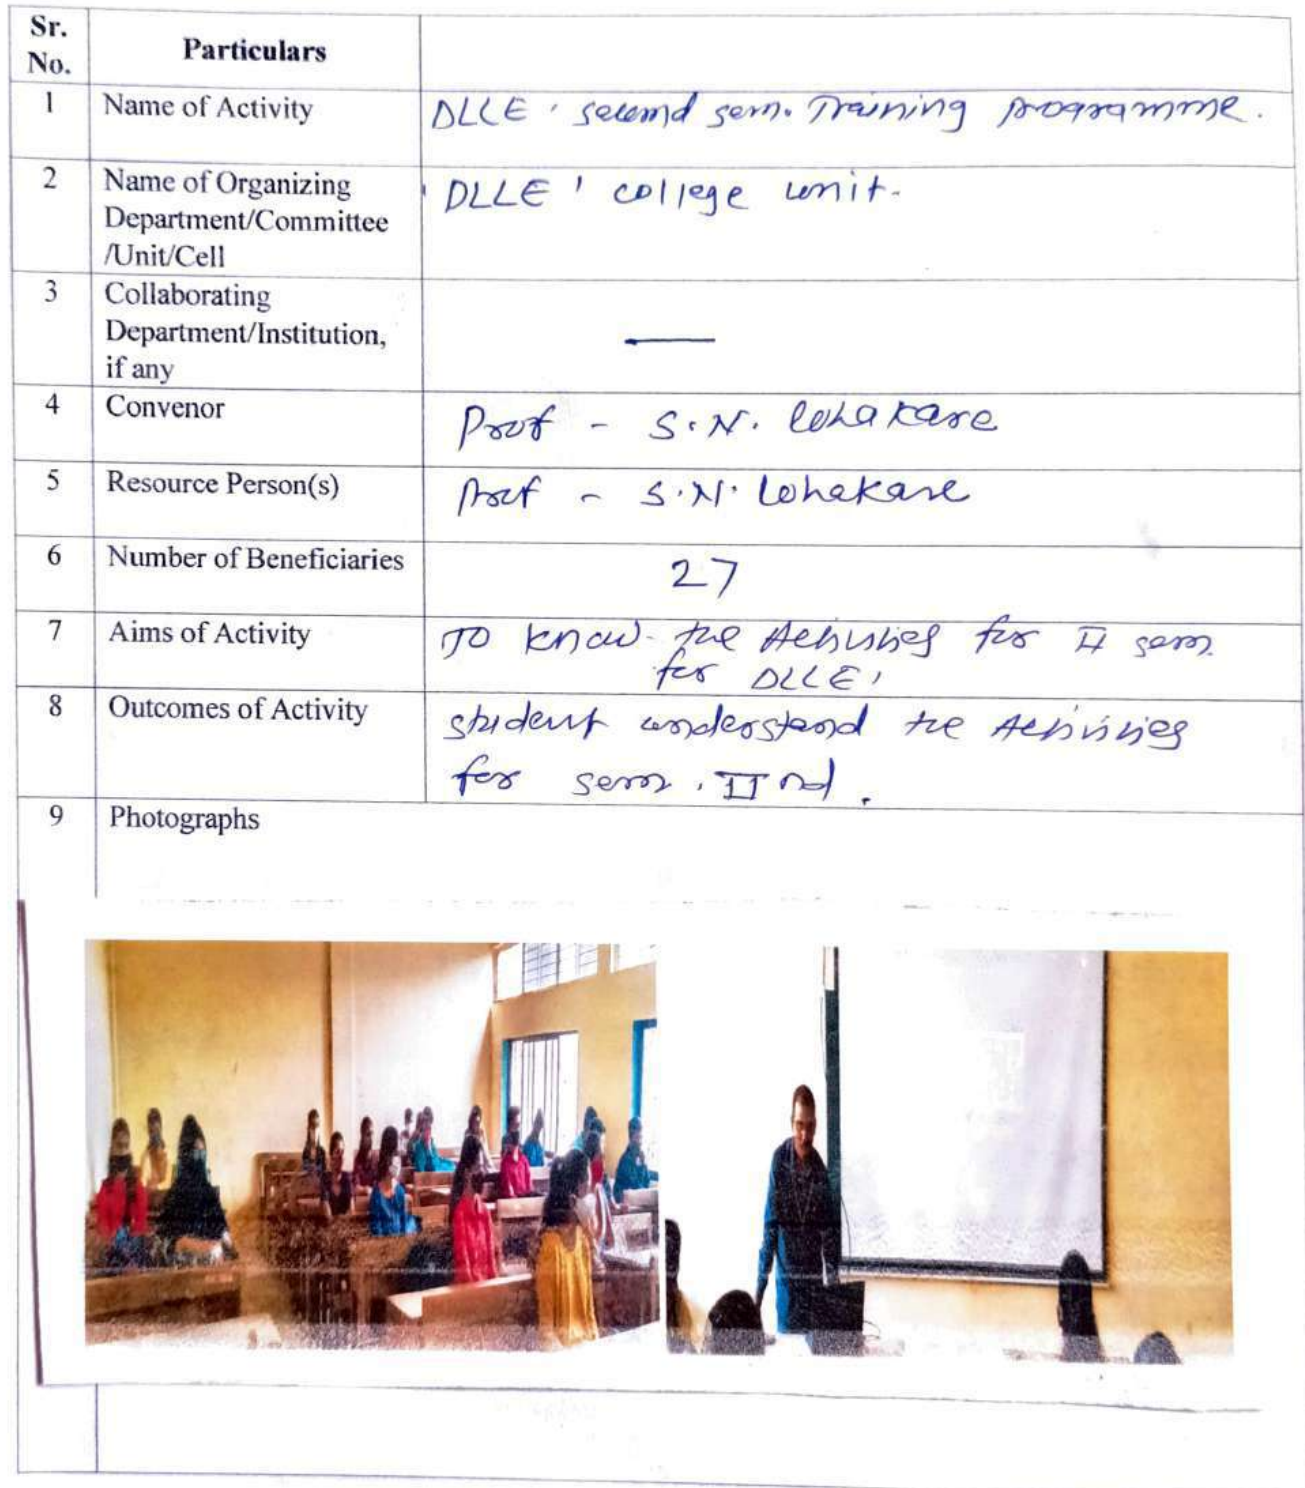 Sr. No.
Particulars
1 Name of Activity DLLE ' second sem. Training programme.
2 Name of Organizing 'DLLE' college unit.
Department/Committee
/Unit/Cell
3 Collaborating
Department/Institution, —
if any
4 Convenor Prof - S.N. Lohakare
5 Resource Person(s) Prof - S.N. Lohakare
6 Number of Beneficiaries 27
7 Aims of Activity To know the Activities for II sem.
for DLLE'
8 Outcomes of Activity student understand the Activities
for sem. II nd.
9 Photographs